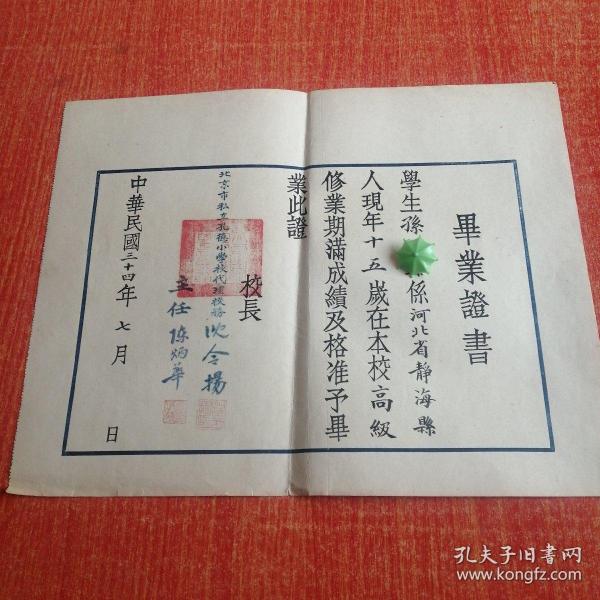 畢業證書
學生孫 係河北省靜海縣
人現年十五歲在本校高級
修業期滿成績及格准予畢
業此證
校長
北京市私立孔德小學校代理校務 沈令揚
主任 陈炳華
中華民國三十四年 七月 日
孔夫子旧书网
www.kongfz.com